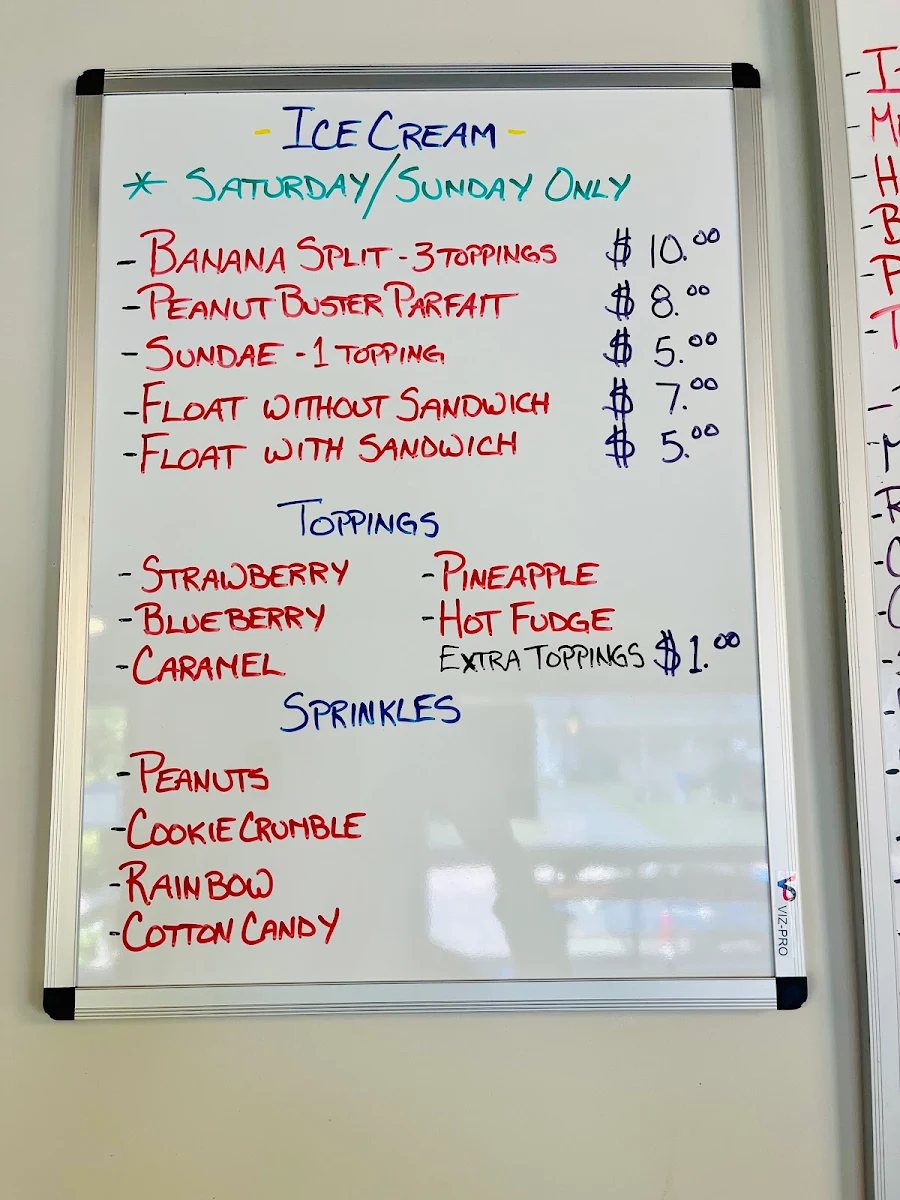 - ICE CREAM -
* SATURDAY/SUNDAY ONLY
- BANANA SPLIT - 3 TOPPINGS $ 10.00
- PEANUT BUSTER PARFAIT $ 8.00
- SUNDAE - 1 TOPPING $ 5.00
- FLOAT WITHOUT SANDWICH $ 7.00
- FLOAT WITH SANDWICH $ 5.00
TOPPINGS
- STRAWBERRY - PINEAPPLE
- BLUEBERRY - HOT FUDGE
- CARAMEL EXTRA TOPPINGS $1.00
SPRINKLES
- PEANUTS
- COOKIE CRUMBLE
- RAINBOW
- COTTON CANDY
VIZ-PRO